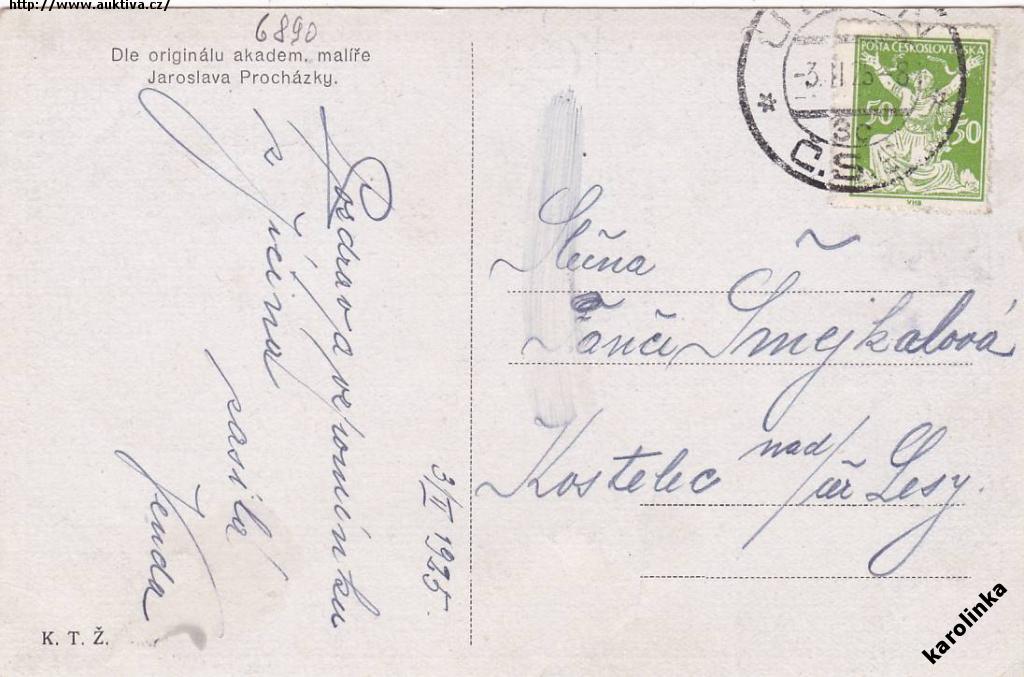 http://www.auktiva.cz/
6890
Dle originálu akadem. malíře
Jaroslava Procházky.
Pozdrav a ve pomínku
z Jičína
zasílá
Jenda
3/II 1925.
K. T. Ž.
POŠTA ČESKOSLOVENSKA
50 50
VHB
-3.II 25-8
Č.S.
Slečna
Fanči Smejkalová
Kostelec nad/čer Lesy.
karolinka